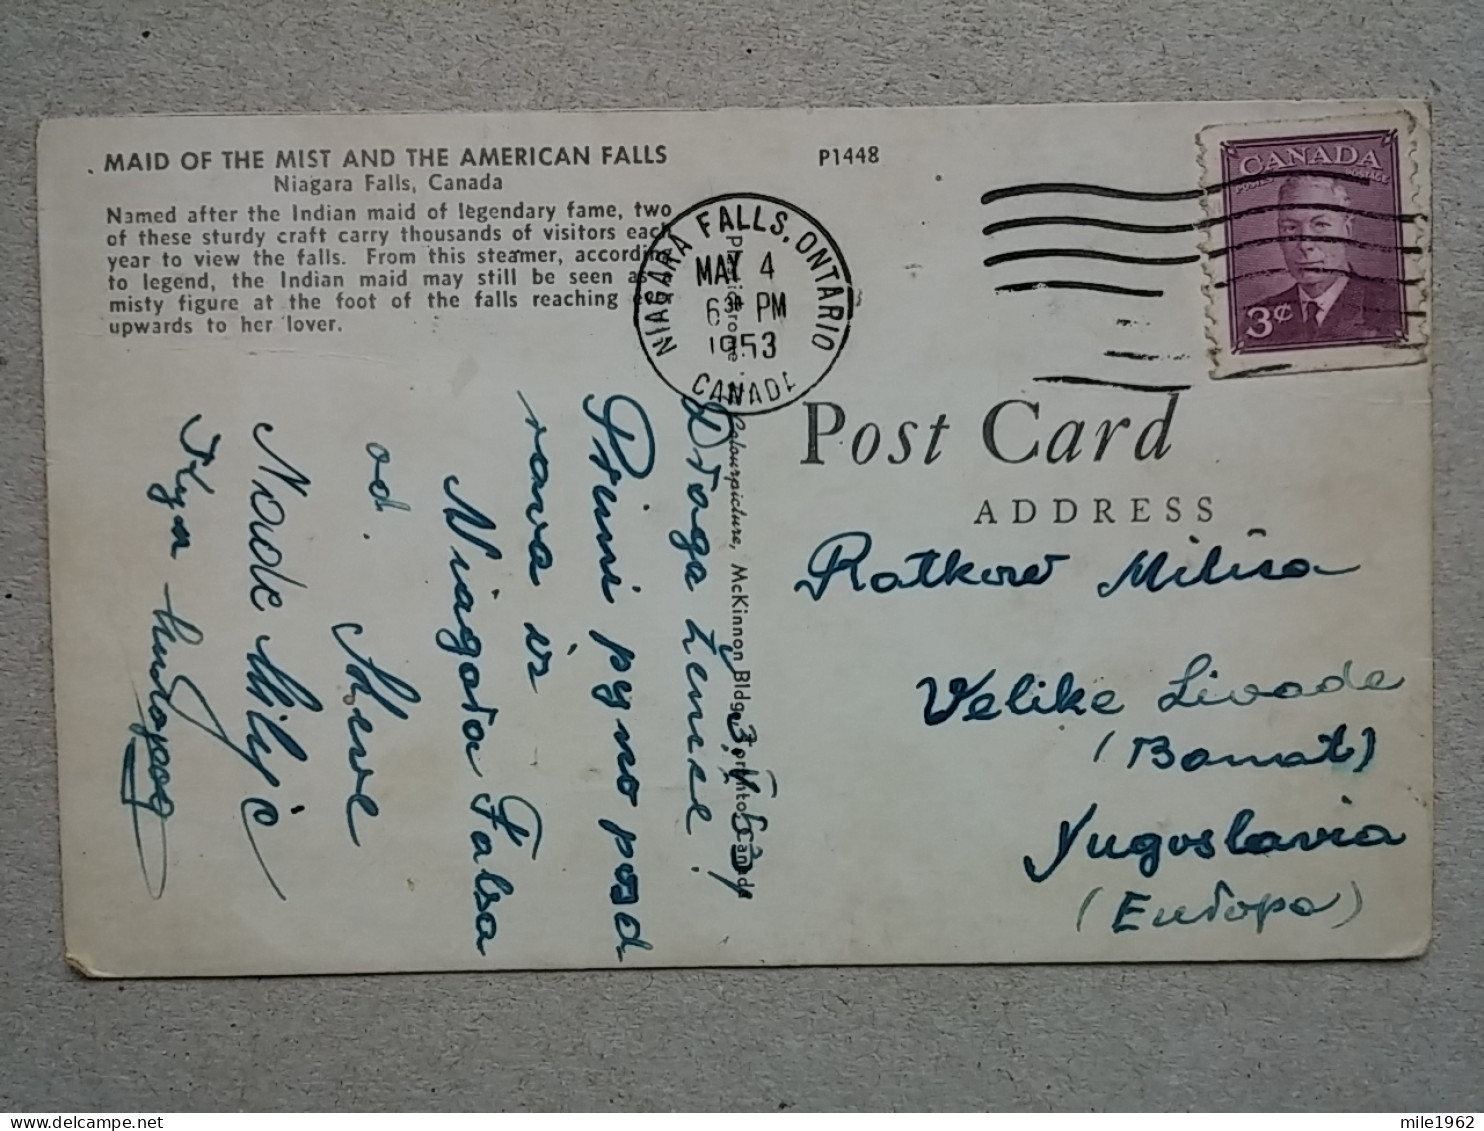 MAID OF THE MIST AND THE AMERICAN FALLS
Niagara Falls, Canada
Named after the Indian maid of legendary fame, two
of these sturdy craft carry thousands of visitors each
year to view the falls. From this steamer, according
to legend, the Indian maid may still be seen as a
misty figure at the foot of the falls reaching
upwards to her lover.
P1448
NIAGARA FALLS, ONTARIO
MAY 4
PM
1953
CANADA
CANADA
POSTES POSTAGE
3¢
Post Card
ADDRESS
Ratkow Milisa
Velike Livade
(Banat)
Yugoslavia
(Europa)
Colourpicture, McKinnon Bldg. Toronto, Canada
3. V 53
Draga
Primi puno pozd
rava iz
Niagara Falsa
od.
Steve
Nade
mile1962